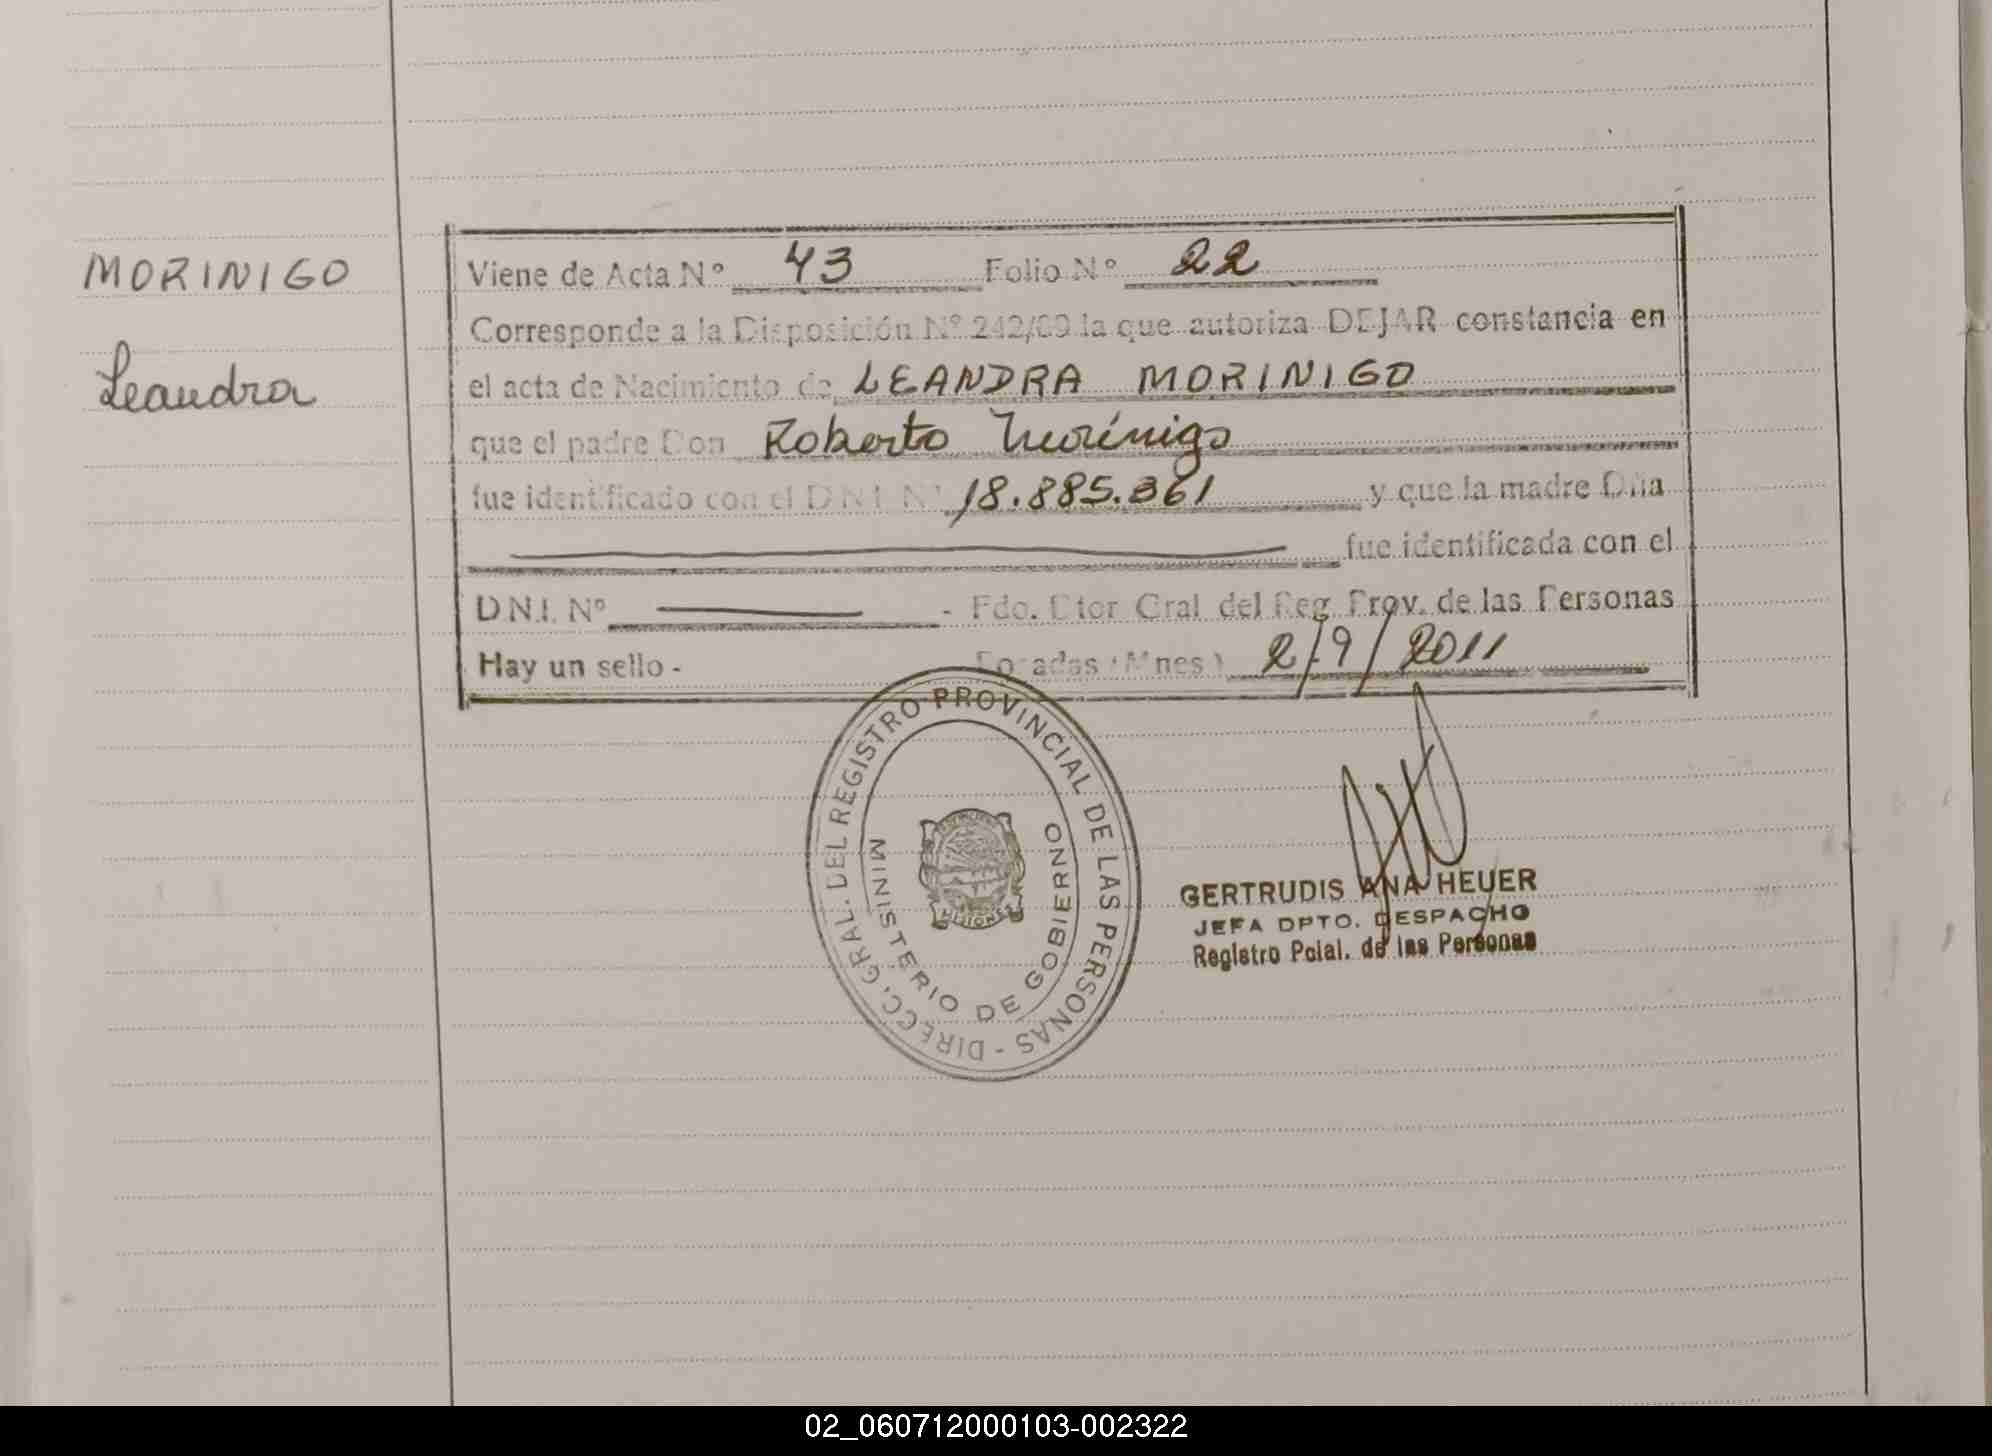 MORINIGO
Leandra
Viene de Acta N° 43 Folio N° 22
Corresponde a la Disposición N° 242/09 la que autoriza DEJAR constancia en
el acta de Nacimiento de LEANDRA MORINIGO
que el padre Don Roberto Morinigo
fue identificado con el D.N.I. N° 18.885.361 y que la madre Dña
fue identificada con el
D.N.I. N° - Fdo. Dtor Gral del Reg Prov. de las Personas
Hay un sello - Posadas (Mnes) 2/9/2011
DIRECC. GRAL. DEL REGISTRO PROVINCIAL DE LAS PERSONAS -
MINISTERIO DE GOBIERNO
MISIONES
GERTRUDIS ANA HEUER
JEFA DPTO. DESPACHO
Registro Pcial. de las Personas
02_060712000103-002322